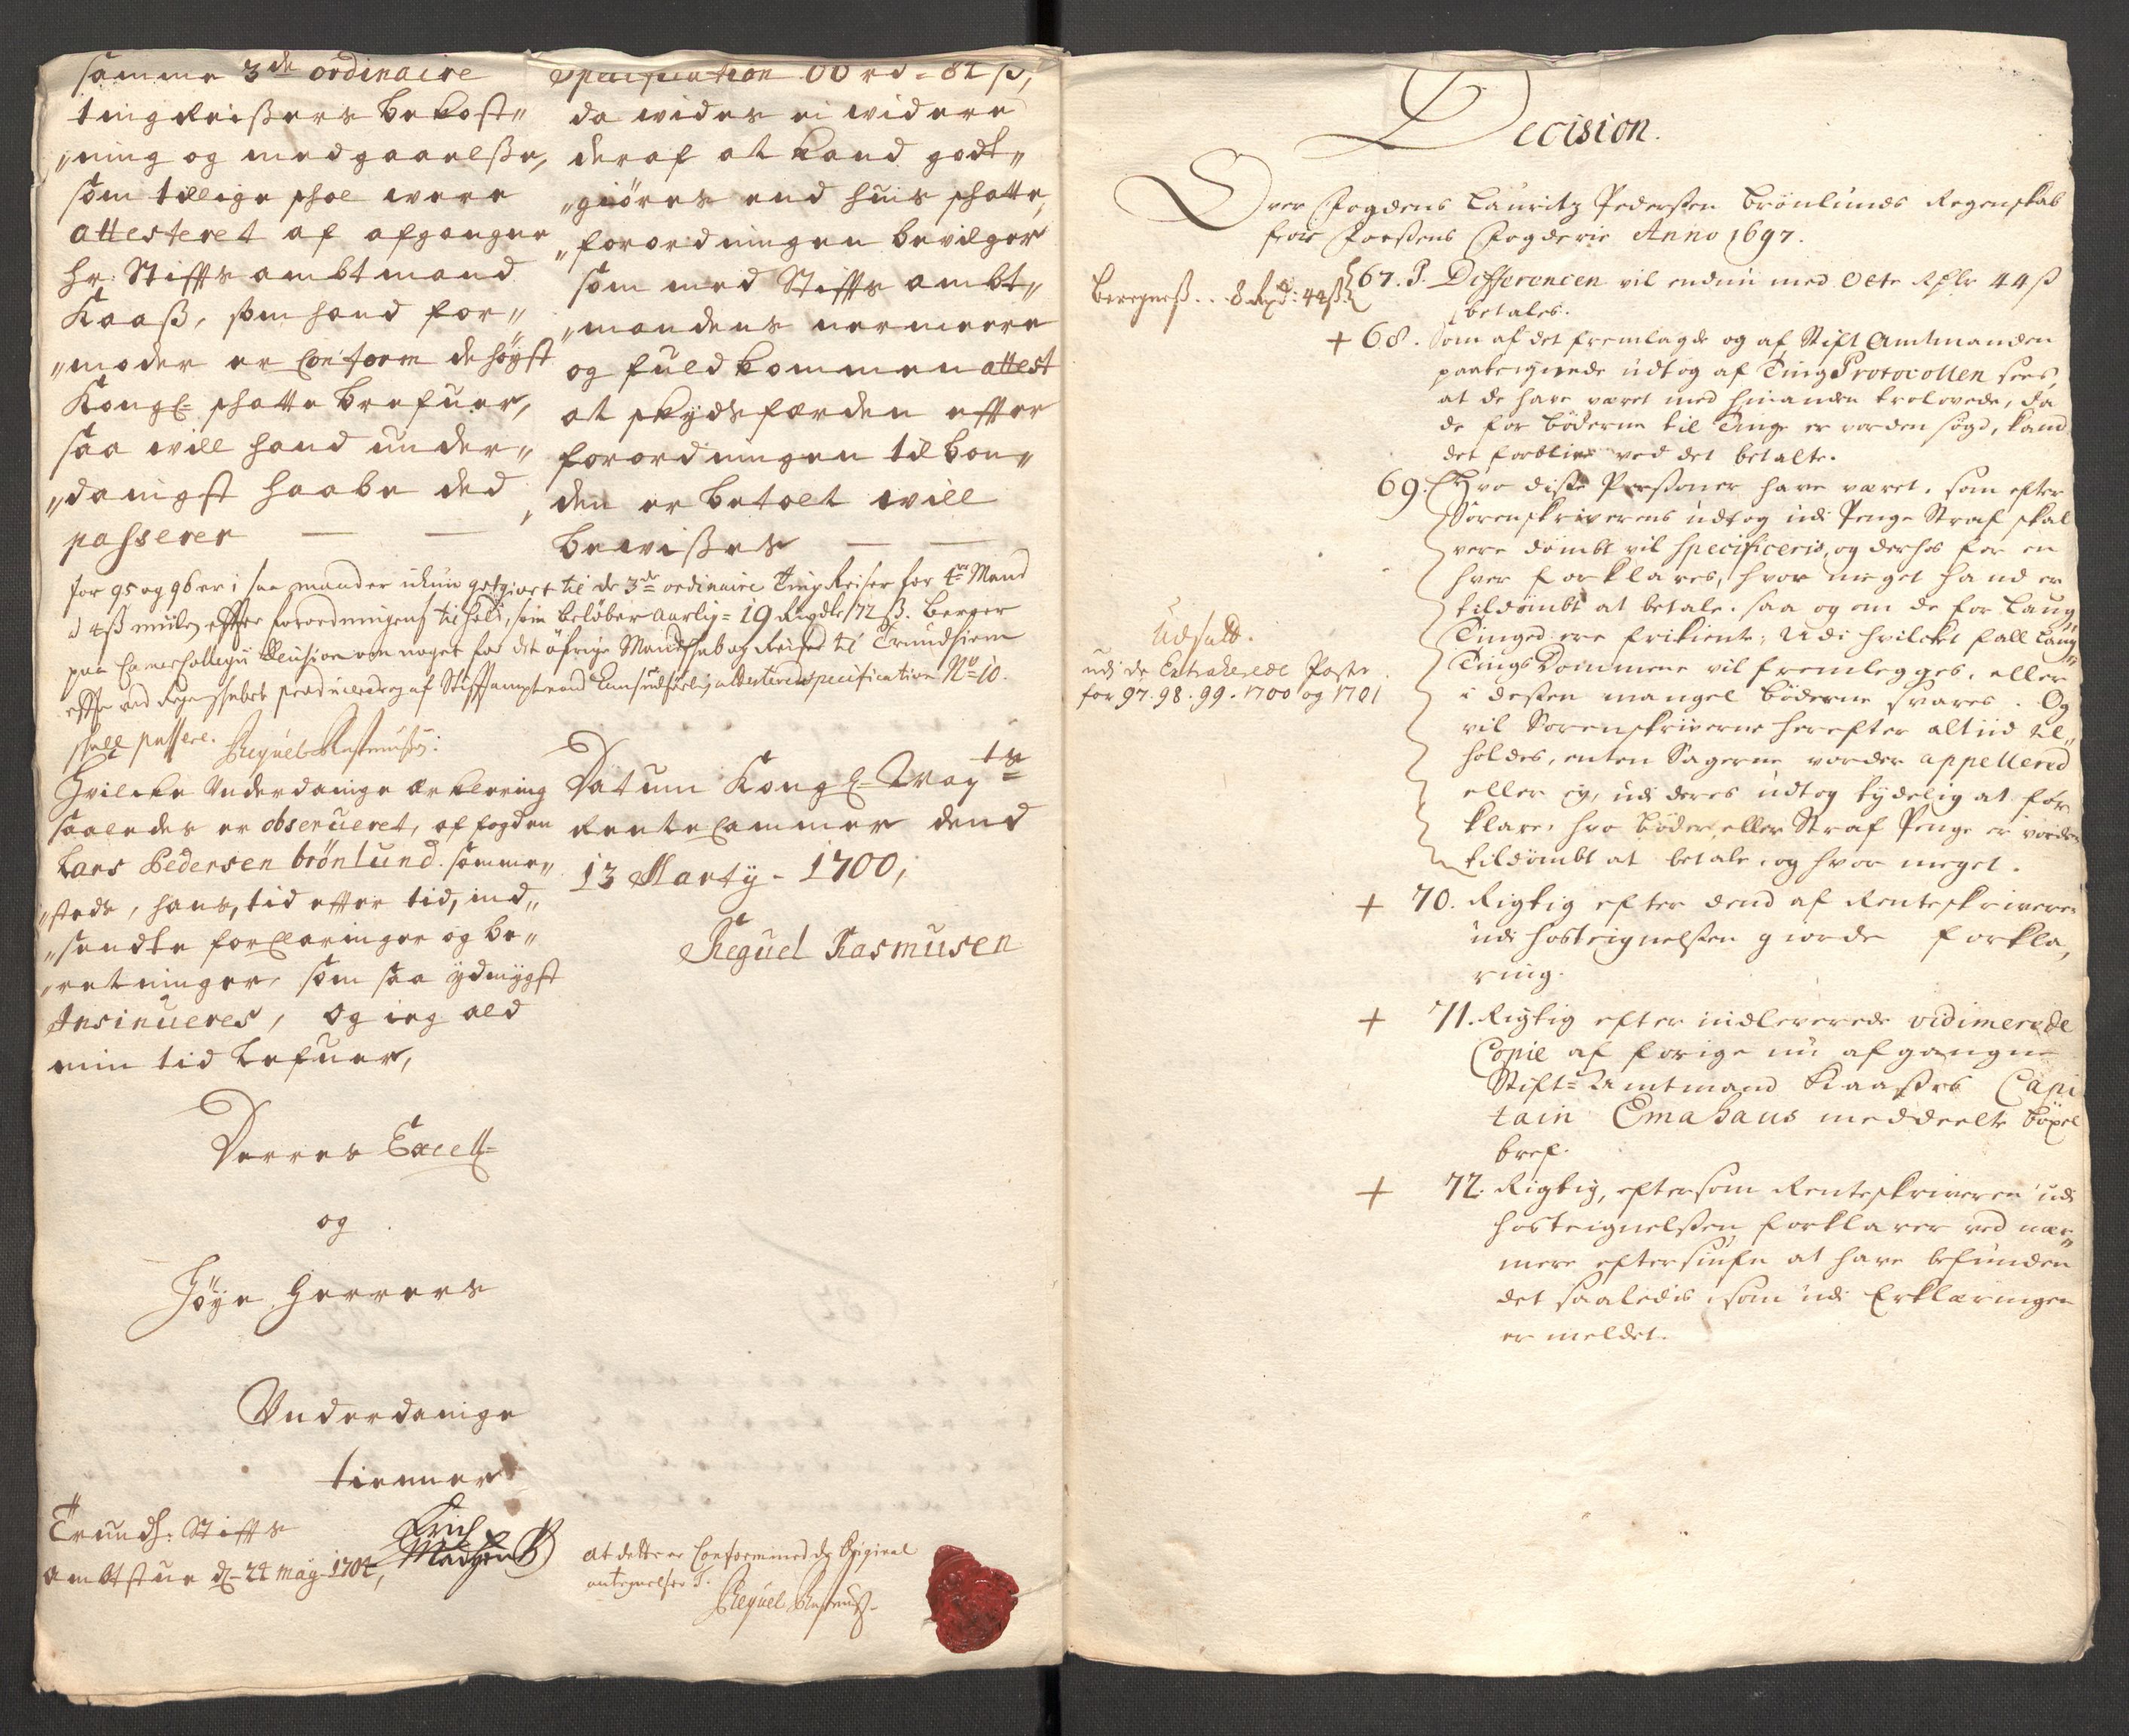 samme 3de ordinaire
tingReissers bekost„
„ning og medgaaelsse,
som tillige skal were
attesteret af afgangne
hr: Stiffts ambtmand
Kaaß, som hand for„
„moder er Conform de høyst
Kongl: skatte brefuer,
saa will hand under„
„danigst haabe ded
passerer — —
specification 00 rd = 82 ß,
da wides ei widere
deraf at kand godt„
„giøres end huis skatte,
„forordningen bevilger
som med Stiffts ambt„
„mandens nermeere
og fuldkommen attest
at skydsferden effter
forordningen til bon„
den er betalt will
bewisses — —
for 95 og 96 er i saa maader ikun godtgiort til de 3de ordinaire TingReiser for 4re Mand
à 4ß milen effter forordningens tilhold, som beløber aarlig = 19 Rigdlr 72 ß. Berger
paa Camercollegii Decision om noget for det øfrige Mandskab og Reiser til Trundhiem
effter ved Regenskabet producerede og af Stifftsamptmand attesterede specification No 10.
skall passere. Reguel Rasmusen:
Hvilcke Underdanige ercklering
saaledes er obserueret, af fogden
Lars Pedersen brønlund. samme„
„steds, hans, tid effter tid, ind„
„sendte forklaringer og be„
„retninger, som saa ydmygst
Insinueres, og ieg ald
min tid lefuer,
Derres Excell:
og
Høye Herrers
Underdanige
tienner
Trundh: Stiffts
ambtstue d: 24 May 1704,
Erich
Madsen
Datum Kongl: Mayts
RenteCammer dend
13 Marty - 1700,
Reguel Rasmusen
at dette er Conform med dend Original
antegnelse T.
Reguel Rasmus
Decision.
Over Fogdens Lauritz Pederssen Brønlunds Regenskab
for Fossens Fogderie Anno 1697.
Beregneß .. 8 Rxd: 44ß
67. P. Differencen vil endnu med Otte Rdlr 44 ß
betales.
+ 68. Som af det fremlagde og af Stift Amtmanden
paategnede udtog af TingProtocollen sees,
at de have veret med hinanden trolovede, da
de for bøderne til Tinge er vorden søgd, kand
det forblive ved det betalte.
69. Hvo disse Personer have veret, som efter
Sorenskriverens udtog udi Penge Straf skal
vere dømbt vil specificeris, og derhos for en
hver forklares, hvor meget hand er
tildømbt at betale. saa og om de for Laug„
Tinged ere frikiente; Udi hvilcket fall Laug„
Tings Dommene vil fremlegges, eller
i dessen mangel bøderne svares. Og
vil Sorenskriverne herefter altiid til„
holdes, enten Sagerne vorder appellered
eller ey, udi deres udtog tydelig at for„
klare, hvo bøder eller Straf Penge er vorden
tildømbt at betale, og hvor meget.
Udsatt.
udi de Extraherede Poster
for 97. 98. 99. 1700 og 1701
+ 70. Rigtig efter dend af Renteskriveren
udi hostegnelssen giorde forkla„
ring.
+ 71. Rigtig efter indleverede vidimerede
Copie af forige nu afgangne
Stift=Amtmand Kaasses Capi
tain Emahaus meddeelte bøxel
bref.
+ 72. Rigtig, eftersom Renteskriveren udi
hostegnelssen forklarer ved nær„
mere eftersiufn at have befunden
det saaledis, som udi Erklæringen
er meldet.